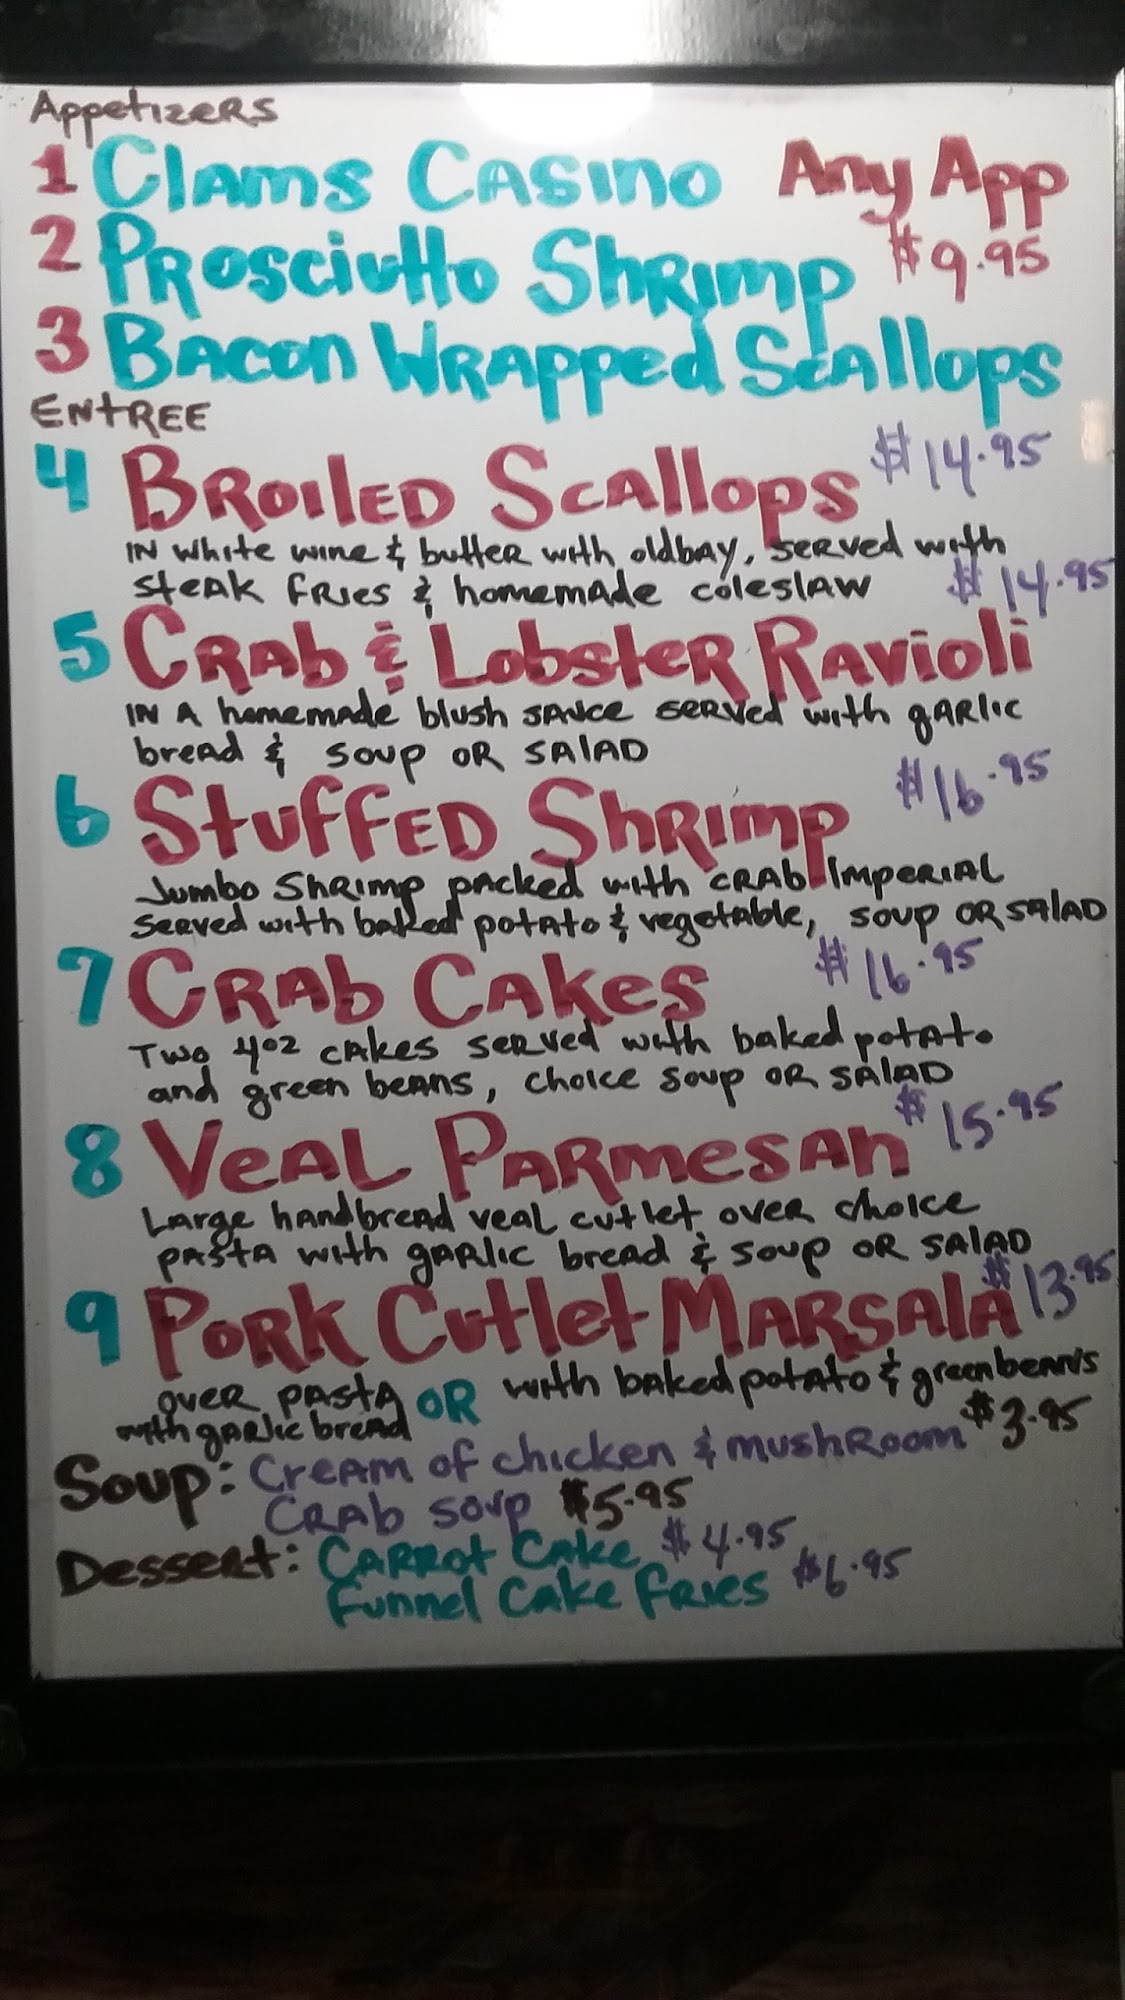 Appetizers
1 Clams Casino Any App
2 Prosciutto Shrimp $9.95
3 Bacon Wrapped Scallops
Entree
4 Broiled Scallops $14.95
in white wine & butter with oldbay, served with
steak fries & homemade coleslaw $14.95
5 Crab & Lobster Ravioli
in a homemade blush sauce served with garlic
bread & soup or salad
6 Stuffed Shrimp $16.95
Jumbo Shrimp packed with crab imperial
served with baked potato & vegetable, soup or salad
7 Crab Cakes $16.95
Two 4oz cakes served with baked potato
and green beans, choice soup or salad
8 Veal Parmesan $15.95
Large handbread veal cutlet over choice
pasta with garlic bread & soup or salad
9 Pork Cutlet Marsala $13.95
over pasta OR with baked potato & green beans
with garlic bread
Soup: Cream of chicken & mushroom $3.95
Crab soup $5.95
Dessert: Carrot Cake $4.95
Funnel Cake Fries $6.95